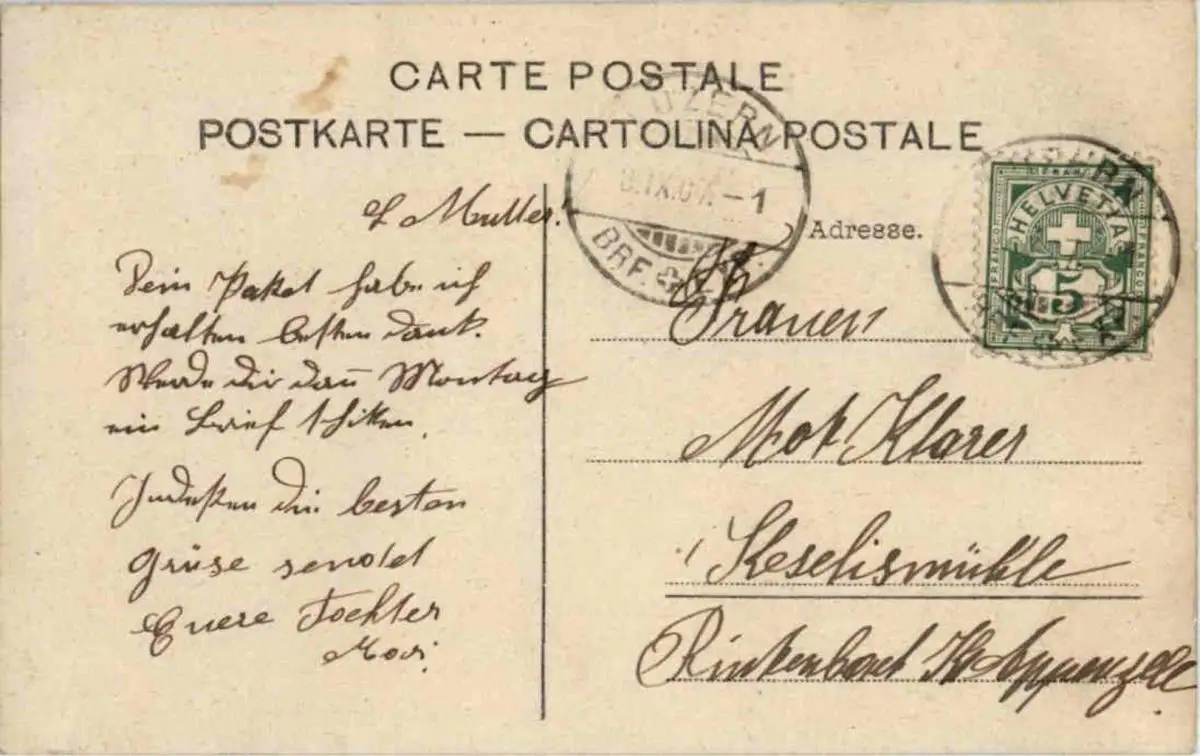 CARTE POSTALE
POSTKARTE — CARTOLINA POSTALE
LUZERN
8.IX.07.–1
BRF.
HELVETIA
FRANCO
5
L Mutter!
Dein Paket habe ich
erhalten besten dank.
Werde dir dan Montag
ein Brief schiken.
Indessen die besten
Grüse sendet
Euere Tochter
Adresse.
Frauen
Klarer
Keselismühle
Rinkenbach Kt Appenzell